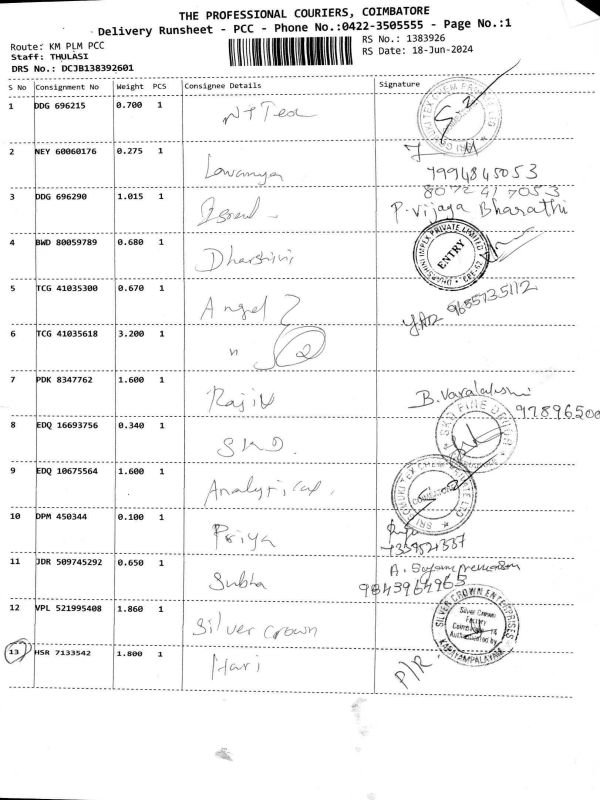 THE PROFESSIONAL COURIERS, COIMBATORE
Delivery Runsheet - PCC - Phone No.:0422-3505555 - Page No.:1
Route: KM PLM PCC
RS No.: 1383926
Staff: THULASI
RS Date: 18-Jun-2024
DRS No.: DCJB138392601
S No Consignment No Weight PCS Consignee Details Signature
1 DDG 696215 0.700 1
2 NEY 60060176 0.275 1 Lavanya
7994845053
3 DDG 696290 1.015 1
8072417053
P. Vijaya Bharathi
4 BWD 80059789 0.680 1 Dharshini
DHARSHINI IMPEX PRIVATE LIMITED
ENTRY
5 TCG 41035300 0.670 1 Angel
9655735112
6 TCG 41035618 3.200 1 " 2
7 PDK 8347762 1.600 1 Rajiv
B. Varalakshmi
97896500
8 EDQ 16693756 0.340 1 SKD.
9 EDQ 10675564 1.600 1 Analytical,
10 DPM 450344 0.100 1 Priya
11 JDR 509745292 0.650 1 Subha
9843964963
12 VPL 521995408 1.860 1 Silver Crown
SILVER CROWN ENTERPRISES
Silver Crown
Authorised by
13 HSR 7133542 1.800 1 Hari
P/R.